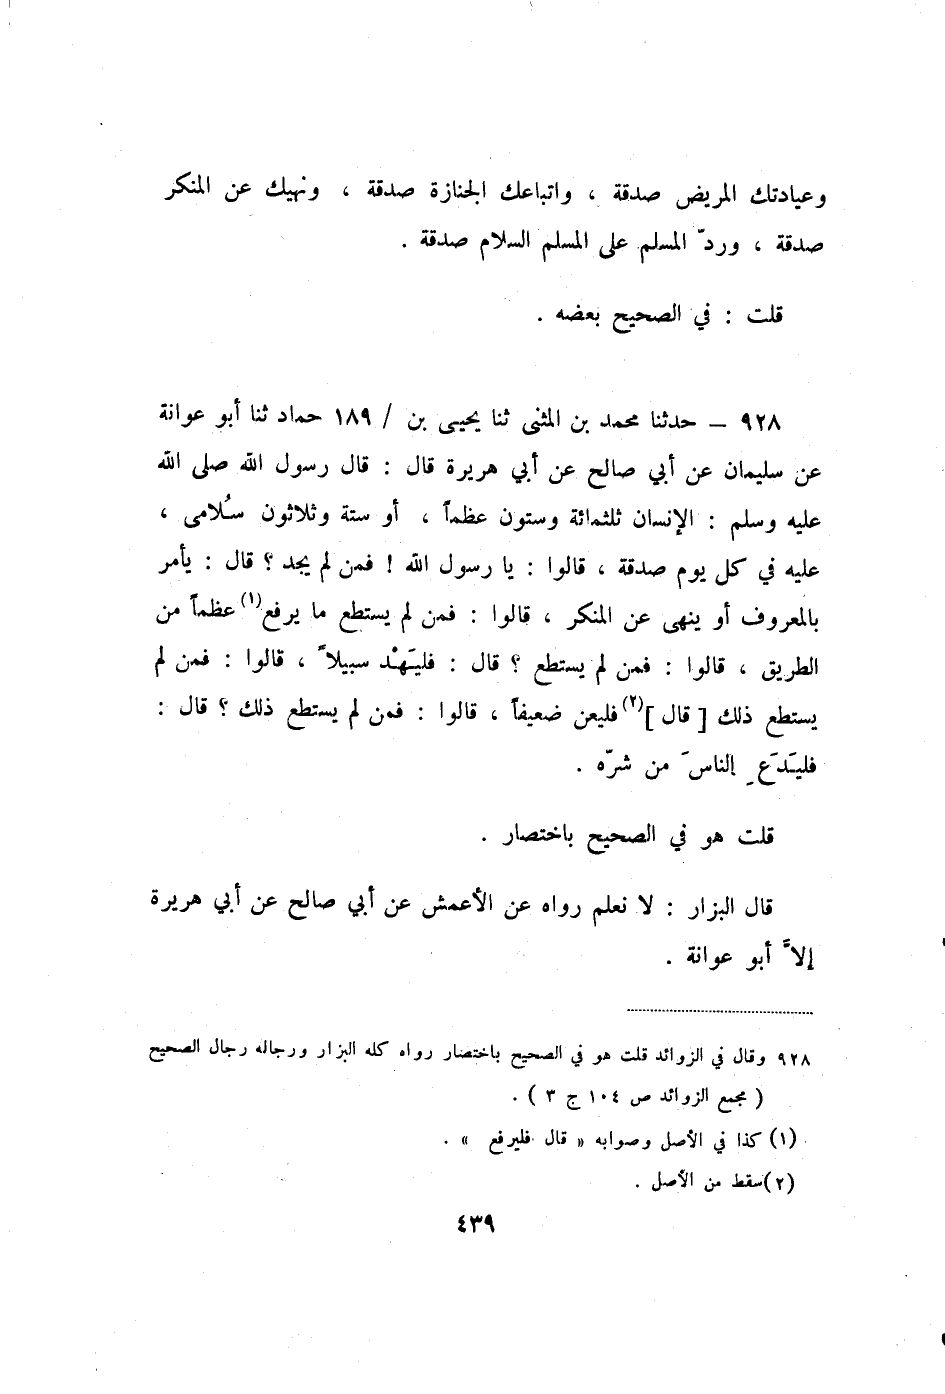 وعيادتك المريض صدقة ، واتباعك الجنازة صدقة ، ونهيك عن المنكر
صدقة ، وردّ المسلم على المسلم السلام صدقة .
قلت : في الصحيح بعضه .
٩٢٨ – حدثنا محمد بن المثنى ثنا يحيى بن / ١٨٩ حماد ثنا أبو عوانة
عن سليمان عن أبي صالح عن أبي هريرة قال : قال رسول الله صلى الله
عليه وسلم : الإنسان ثلثمائة وستون عظماً ، أو ستة وثلاثون سُلامى ،
عليه في كل يوم صدقة ، قالوا : يا رسول الله ! فمن لم يجد ؟ قال : يأمر
بالمعروف أو ينهى عن المنكر ، قالوا : فمن لم يستطع ما يرفع(١) عظماً من
الطريق ، قالوا : فمن لم يستطع ؟ قال : فليَهْد سبيلاً ، قالوا : فمن لم
يستطع ذلك [ قال ](٢) فليعن ضعيفاً ، قالوا : فمن لم يستطع ذلك ؟ قال :
فليَدَعِ الناسَ من شرّه .
قلت هو في الصحيح باختصار .
قال البزار : لا نعلم رواه عن الأعمش عن أبي صالح عن أبي هريرة
إلاَّ أبو عوانة .
٩٢٨ وقال في الزوائد قلت هو في الصحيح باختصار رواه كله البزار ورجاله رجال الصحيح
( مجمع الزوائد ص ١٠٤ ج ٣ ) .
(١) كذا في الأصل وصوابه « قال فليرفع » .
(٢) سقط من الأصل .
٤٣٩